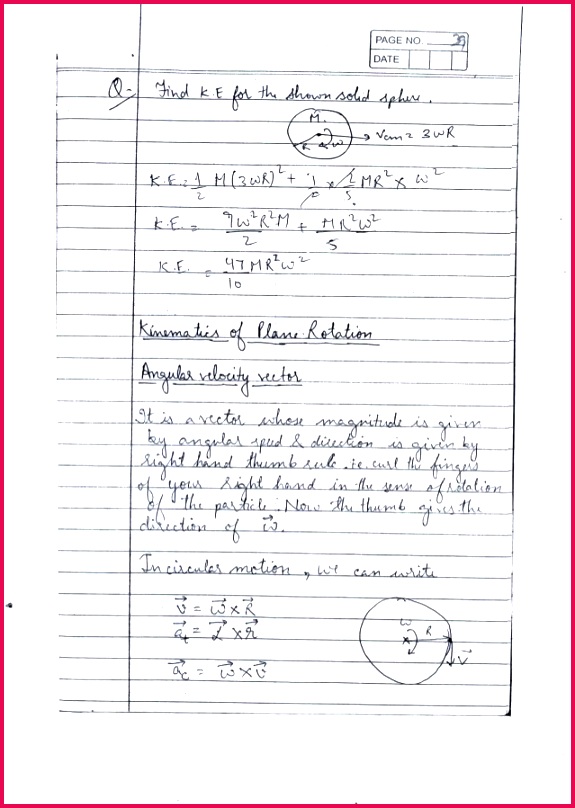 PAGE NO. 39
DATE
Q- Find K.E for the shown solid sphere.
M.
R ω
Vcm = 3ωR
K.E = 1/2 M(3ωR)² + 1/2 × 2/5 MR² × ω²
K.E. = 9ω²R²M/2 + MR²ω²/5
K.E. = 47MR²ω²/10
Kinematics of Plane Rotation
Angular velocity vector
It is a vector whose magnitude is given
by angular speed & direction is given by
right hand thumb rule .ie. curl the fingers
of your right hand in the sense of rotation
of the particle. Now the thumb gives the
direction of ω⃗.
In circular motion, we can write
v⃗ = ω⃗ × R⃗
a⃗t = α⃗ × r⃗
a⃗c = ω⃗ × v⃗
ω
R
v⃗